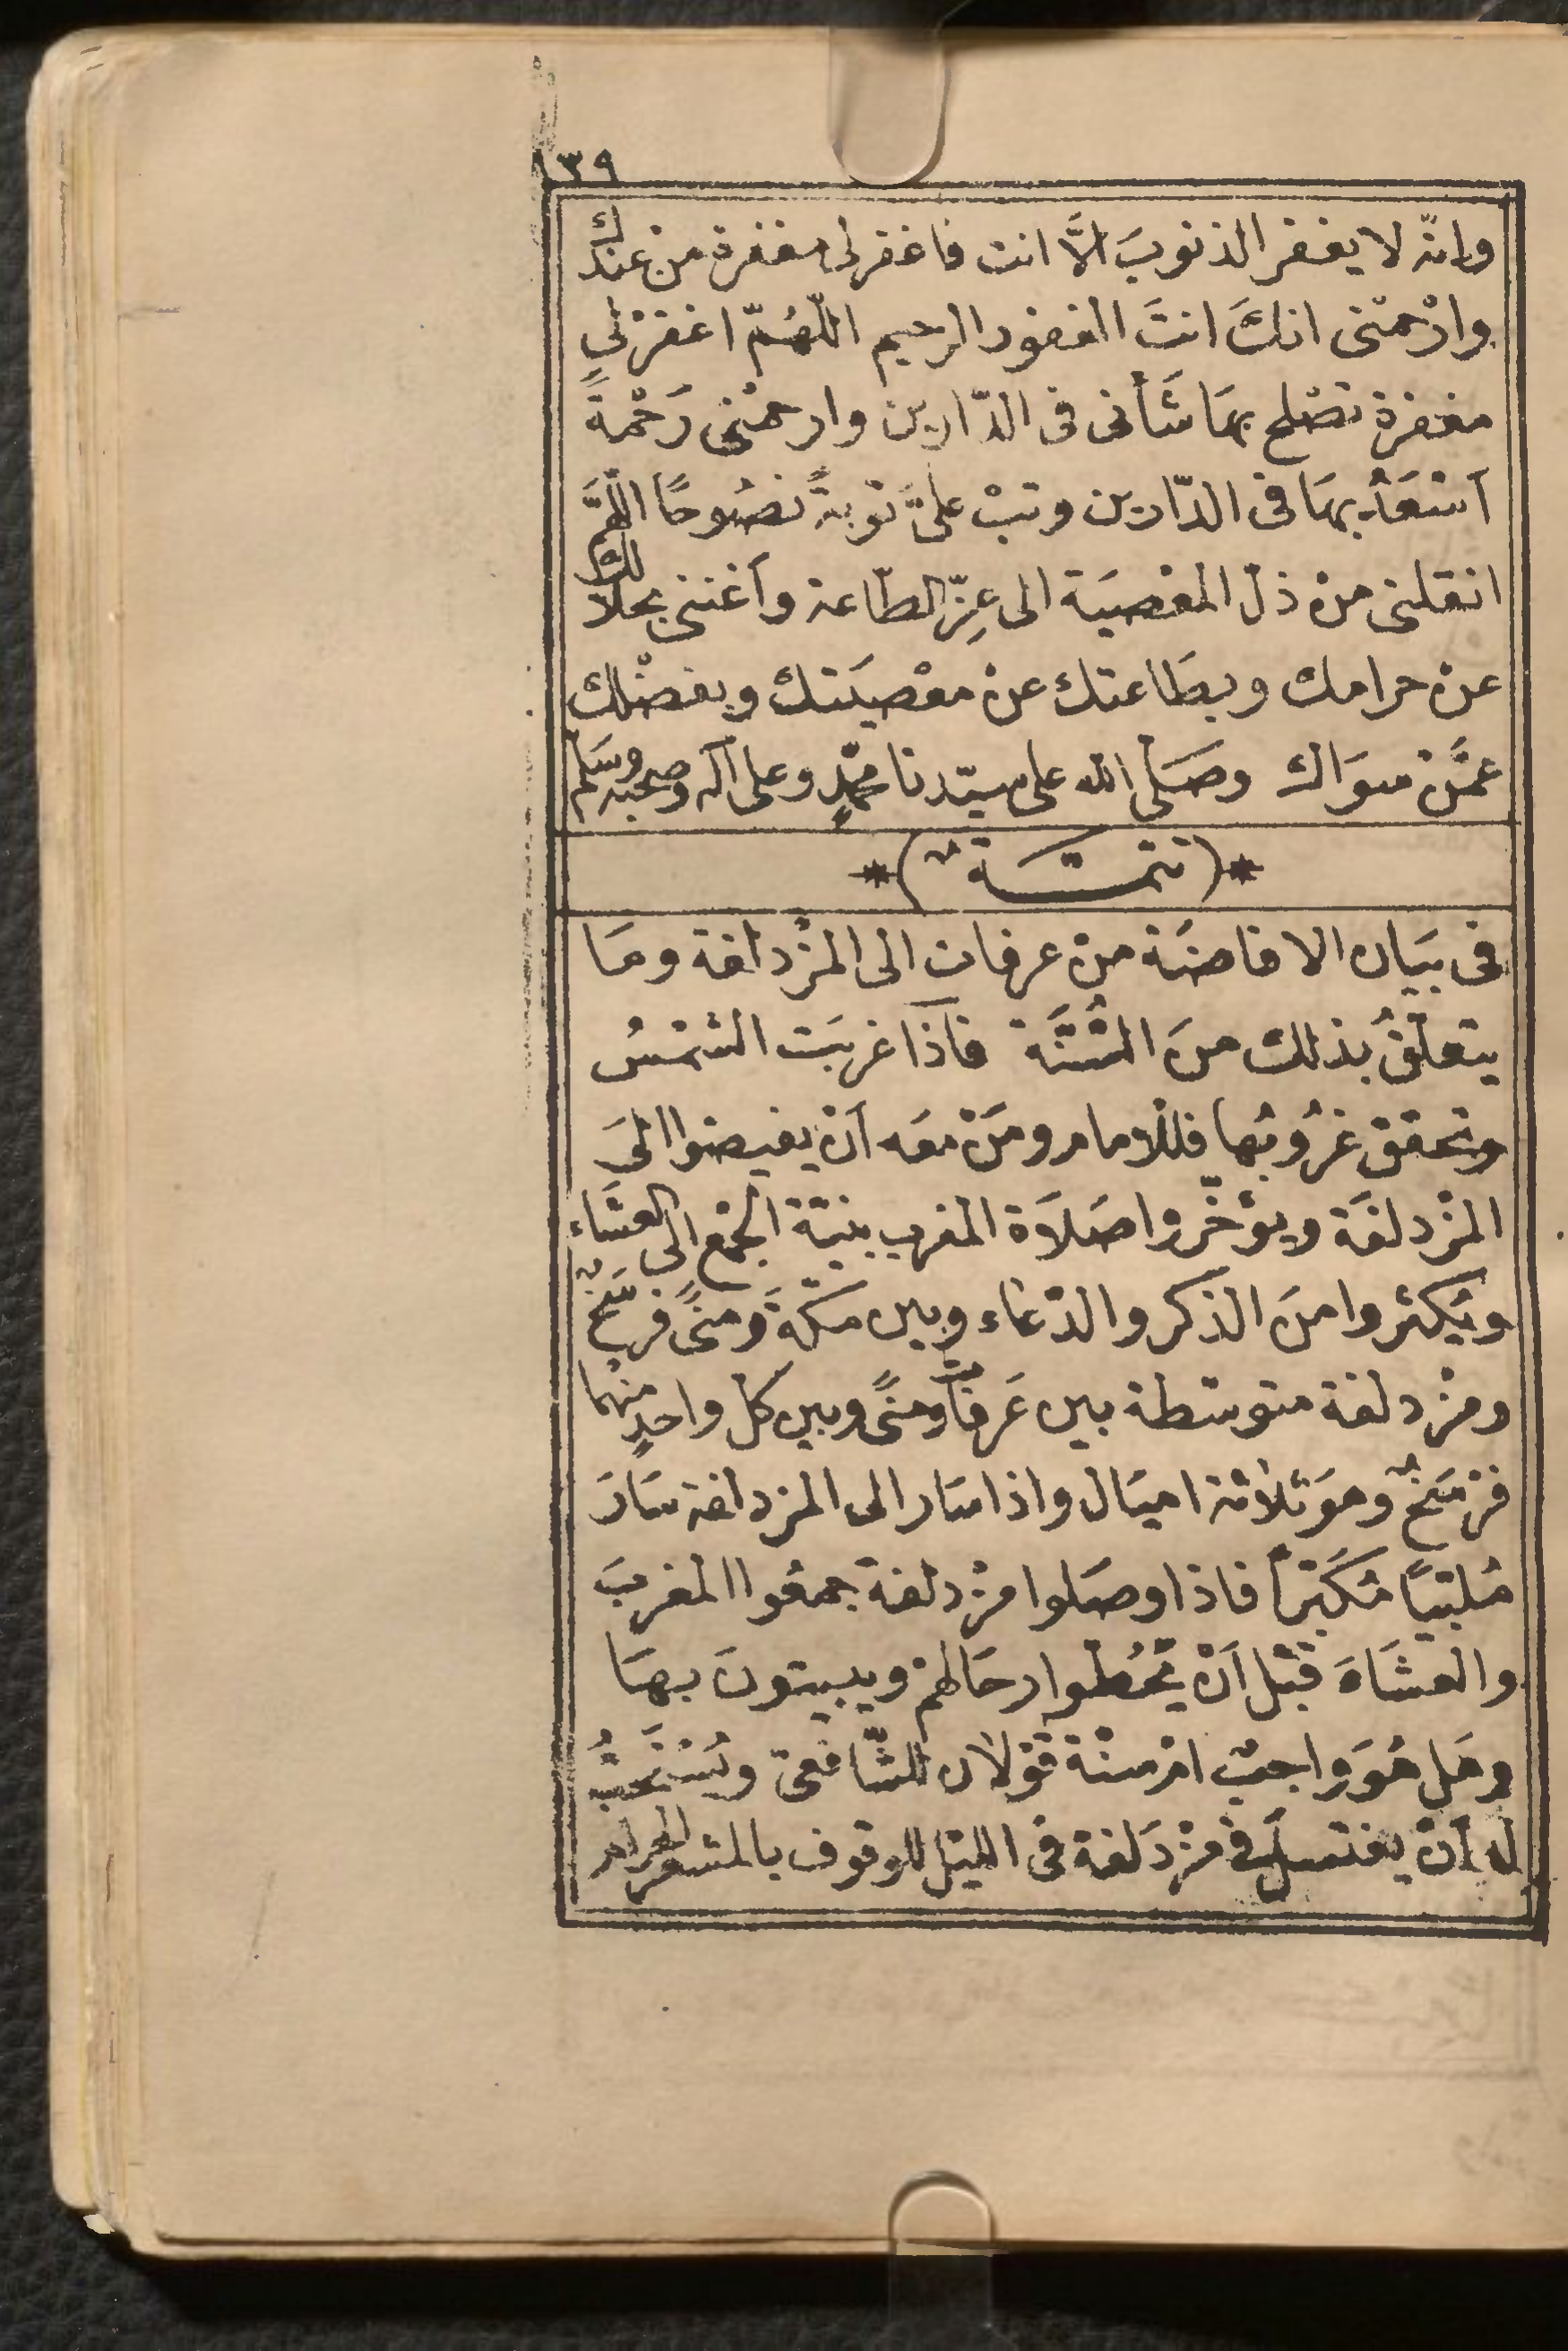 ١٣٩
وانّه لا يغفر الذنوبَ الَّا انت فاغفر لى مغفرة من عندك
وارْحمْنى انكَ انتَ الغفور الرحيم اللّهُمّ اغفرْ لي
مغفرة تصْلح بهَا شَأنى فى الدّارين وارحمْنى رَحْمةً
اَسْعَدُ بهَا فى الدّارين وتبْ علىَّ توْبةً نصُوحًا اللّهمَّ
انقلنى منْ ذلّ المعْصيَة الى عِزّ الطّاعة وَاَغننى بحلالك
عنْ حرامك وبطَاعتك عنْ معْصيَتك وبفضْلك
عمَّنْ سوَاك وصَلّى الله على سيّدنا محمّدٍ وعلى آله وصحبه وسَلم
*(تتمّـة)*
فى بيَان الافاضَة منْ عرفات الى المزْدلفة ومَا
يتعلّقُ بذلك منَ السُّنَّة فاذَا غربَت الشمْسُ
وتحقق غرُوبُها فللامام ومَنْ معَه اَنْ يفيضوا الىَ
المزْدلفَة ويؤخّروا صَلَاة المغرب بنيّة الجمْع الى العشَاء
ويَكثروا منَ الذكر والدّعَاء وبين مكّةَ ومنًى فرسَخٌ
ومزْدلفة متوسّطة بين عَرفَات ومنًى وبين كلّ واحدٍ منهما
فرْسَخٌ وهوَ ثلاثة اميَال واذا سَار الى المزدلفة سَارَ
مُلبّيًا مُكَبّراً فاذا وصَلوا مزْدلفة جمعُوا المغربَ
والعشَاءَ قبْل اَنْ يَحُطّوا رحَالهمْ ويبيتونَ بهَا
وهَل هُوَ واجبٌ امْ سنّة قوْلان للشّافعىّ ويُسْتَحَبُّ
له اَنْ يغتسلَ فى مزْدَلفة فى الليْل للوقوف بالمشعَر الحرام